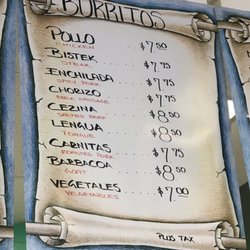 BURRITOS
POLLO $7.50
CHICKEN
BISTEK $7.75
STEAK
ENCHILADA $7.75
SPICY PORK
CHORIZO $7.75
MEX. SAUSAGE
CEZINA $8.50
SALTED BEEF
LENGUA $8.50
TONGUE
CARNITAS $7.75
ROASTED PORK
BARBACOA $8.50
GOAT
VEGETALES $7.00
VEGETABLES
PLUS TAX